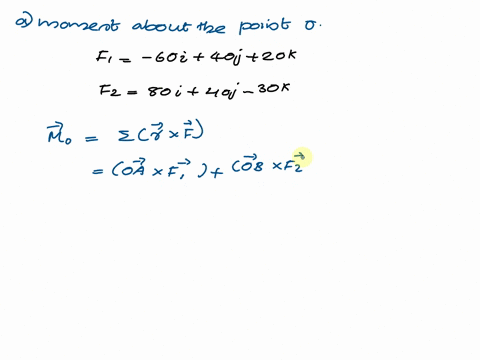 a) moment about the point o.
F₁ = -60i + 40j + 20k
F₂ = 80i + 40j - 30k
M⃗₀ = Σ(r⃗ × F⃗)
= (OA⃗ × F₁⃗) + (OB⃗ × F₂⃗